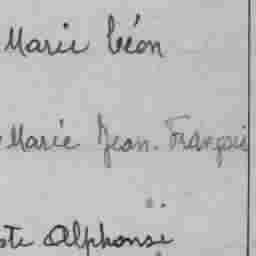 Marie Léon
Marie Jean-François
ste Alphonse